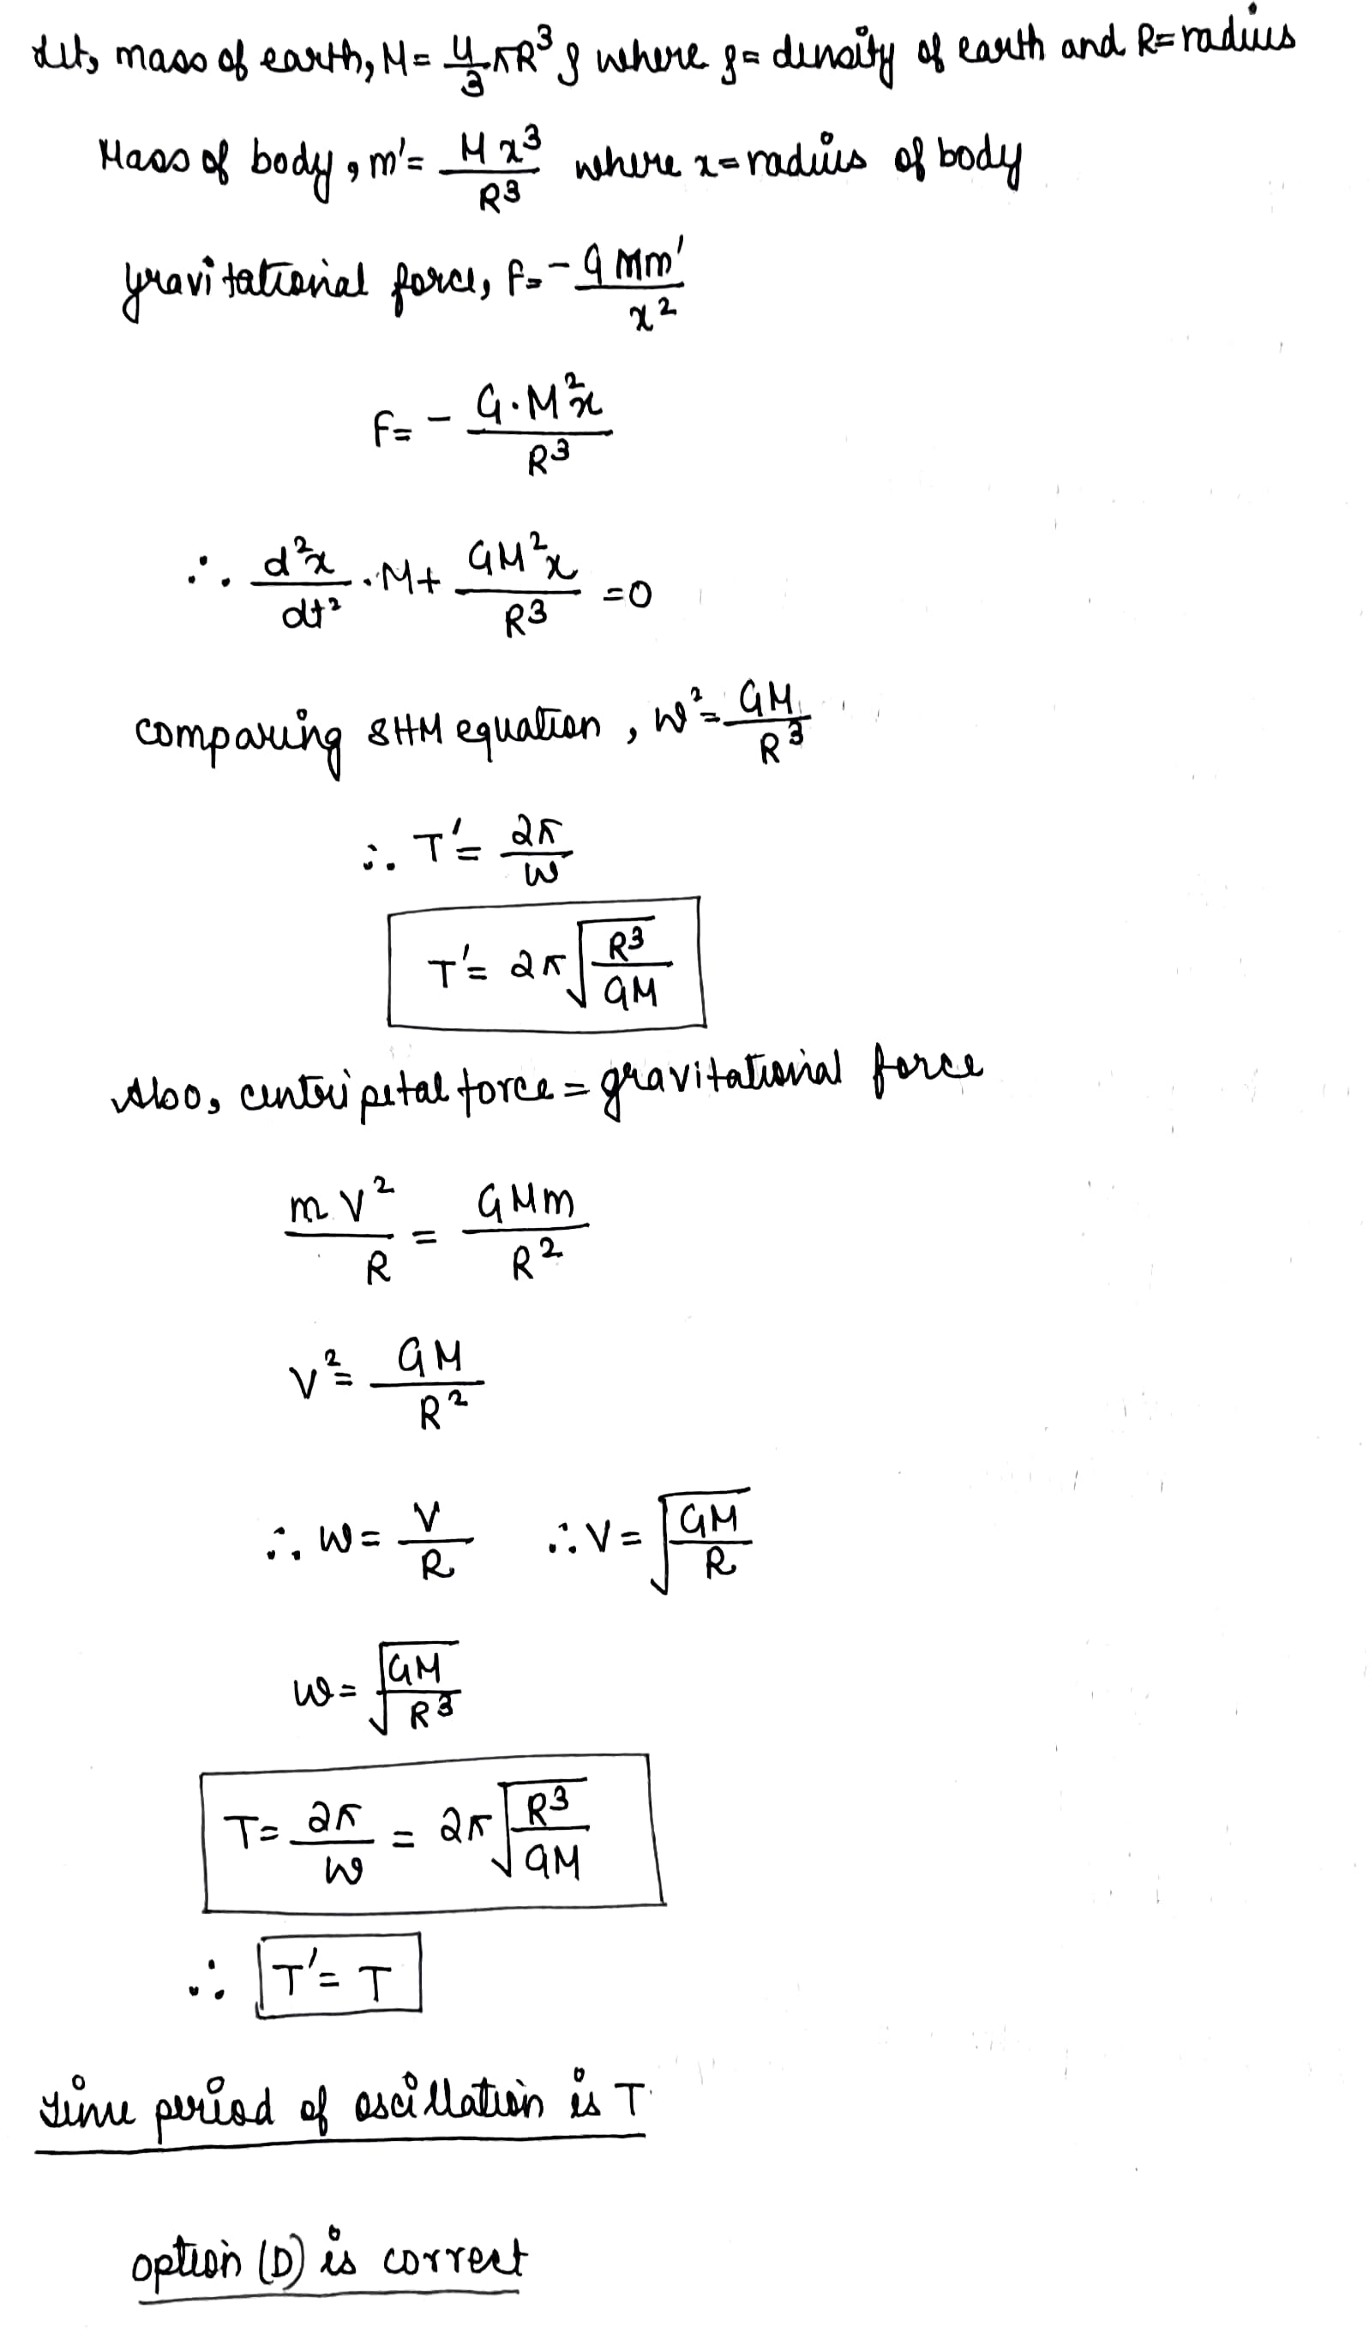 Let, mass of earth, M = 4/3 πR³ρ where ρ = density of earth and R = radius
Mass of body, m' = Mx³/R³ where x = radius of body
gravitational force, F = - GMm'/x²
F = - G·M²x/R³
∴ d²x/dt² · M + GM²x/R³ = 0
comparing SHM equation, W² = GM/R³
∴ T' = 2π/W
T' = 2π√(R³/GM)
Also, centripetal force = gravitational force
mV²/R = GMm/R²
V² = GM/R²
∴ W = V/R ∴ V = √(GM/R)
W = √(GM/R³)
T = 2π/W = 2π√(R³/GM)
∴ T' = T
Time period of oscillation is T
option (D) is correct